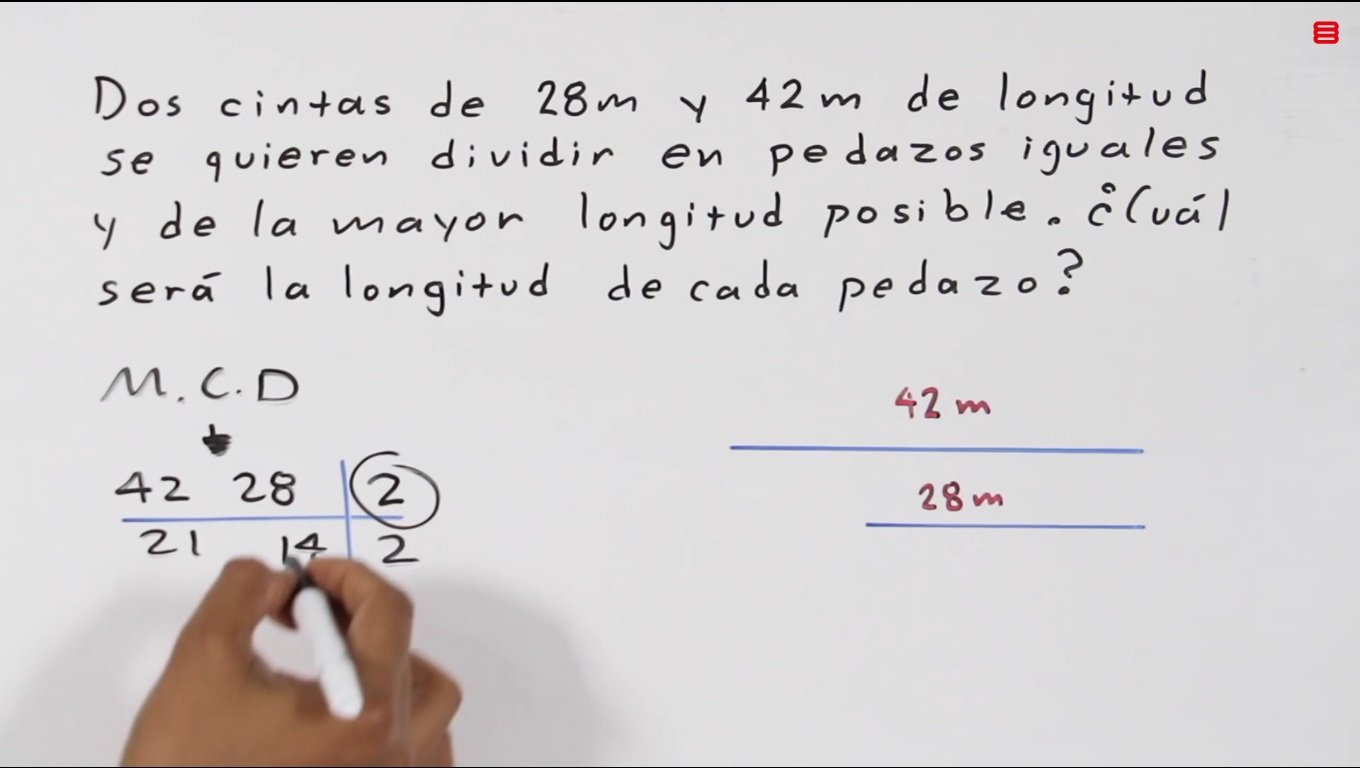 Dos cintas de 28m y 42m de longitud
se quieren dividir en pedazos iguales
y de la mayor longitud posible. ¿Cuál
será la longitud de cada pedazo?
M.C.D
42 28 2
21 14 2
42 m
28 m